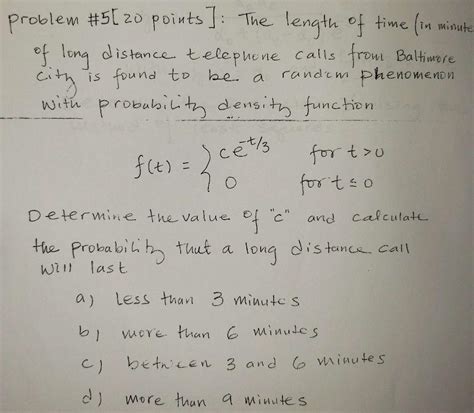 problem #5[20 points]: The length of time (in minute
of long distance telephone calls from Baltimore
City is found to be a random phenomenon
with probability density function
f(t) = { ce^-t/3 for t>0
0 for t≤0
Determine the value of "c" and calculate
the probability that a long distance call
will last
a) less than 3 minutes
b) more than 6 minutes
c) between 3 and 6 minutes
d) more than 9 minutes